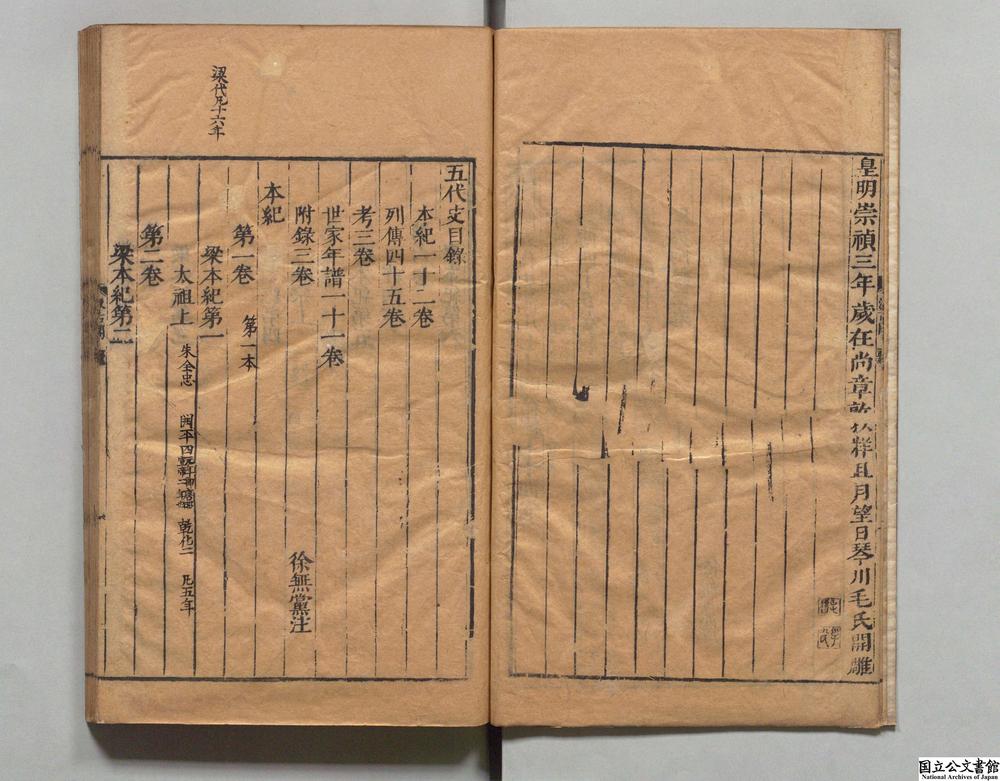 皇明崇禎三年歲在尚章敦牂且月望日琴川毛氏開雕
梁代凡十六年
五代史目錄
本紀一十二卷
列傳四十五卷
考三卷
世家年譜一十一卷
附錄三卷
徐無黨注
本紀
第一卷 第一本
梁本紀第一
太祖上 朱全忠 開平四 乾化二 凡五年
第二卷
梁本紀第二
国立公文書館
National Archives of Japan